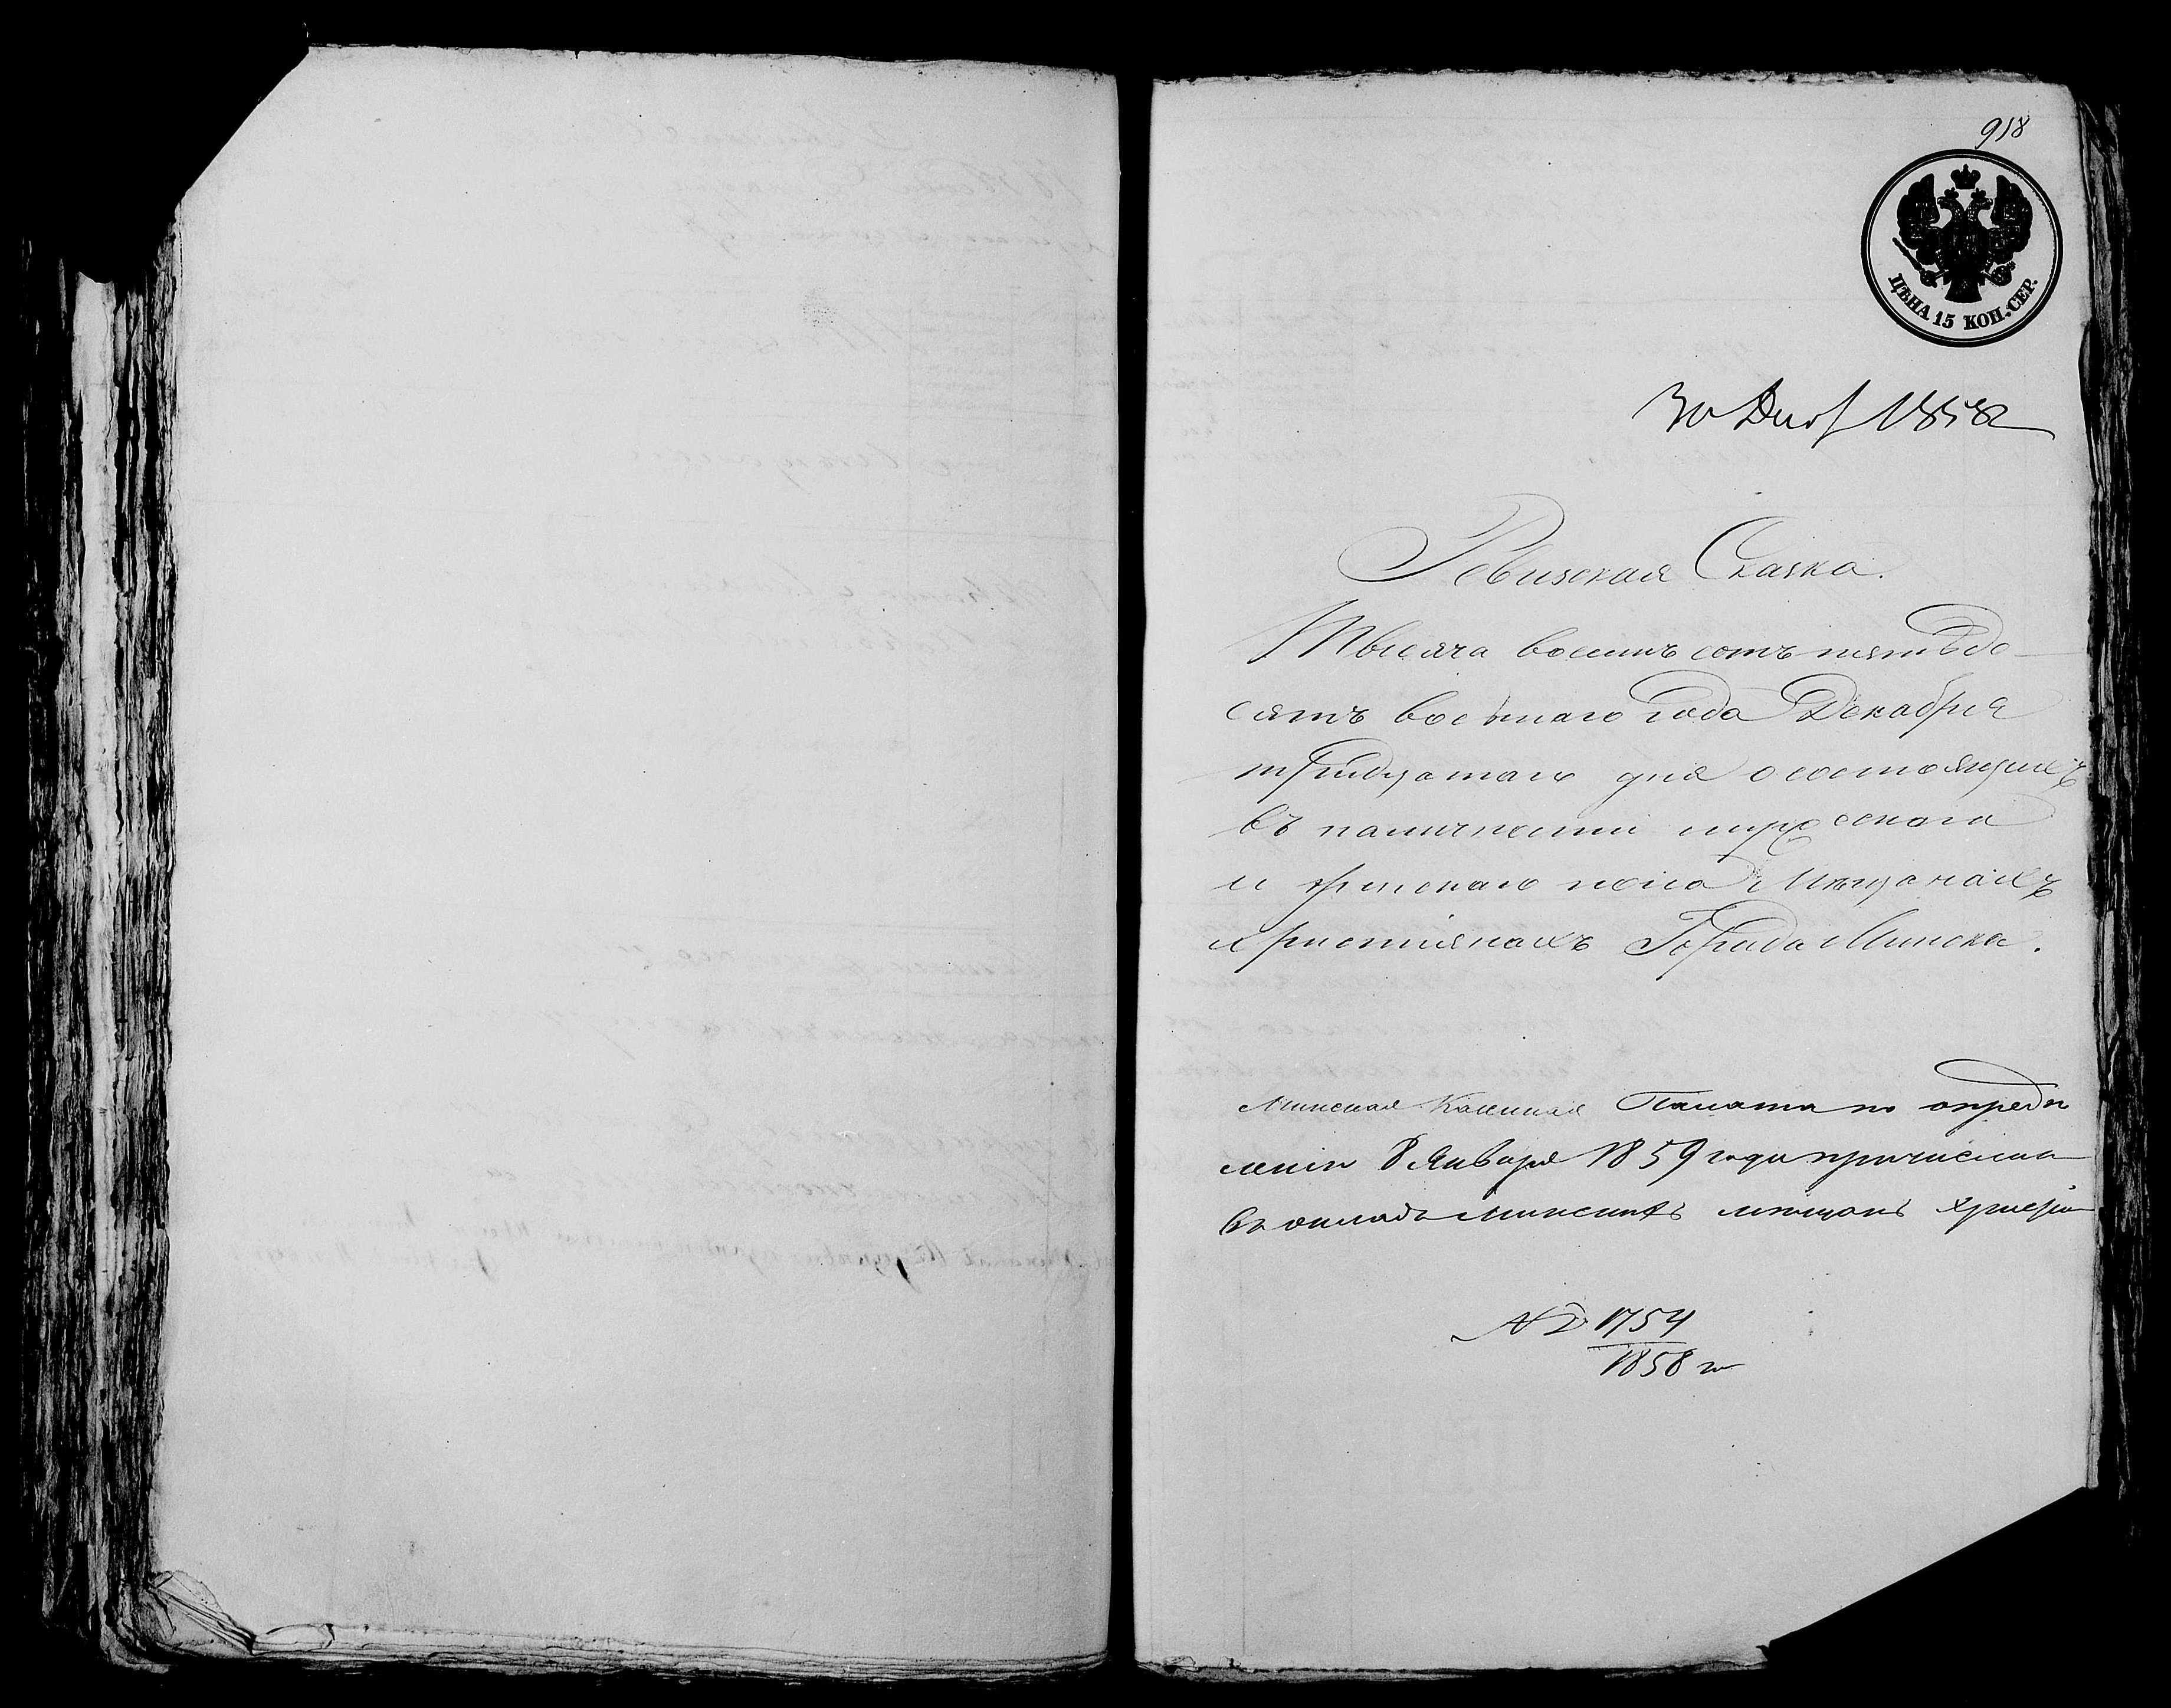 918
ЦѢНА 15 КОП. СЕР.
30 Дек 1858
Ревизская Сказка.
Тысяча восемь сотъ пятьде-
сятъ восьмаго года Декабря
тридцатаго дня о состоящихъ
въ наличности мужескаго
и женскаго пола Мѣщанахъ
христіянахъ Города Минска.
Минская Казенная Палата по опредѣ
ленію 8 Января 1859 года причислила
въ окладъ Минскихъ мѣщанъ Христіан
№ 1754
1858 г